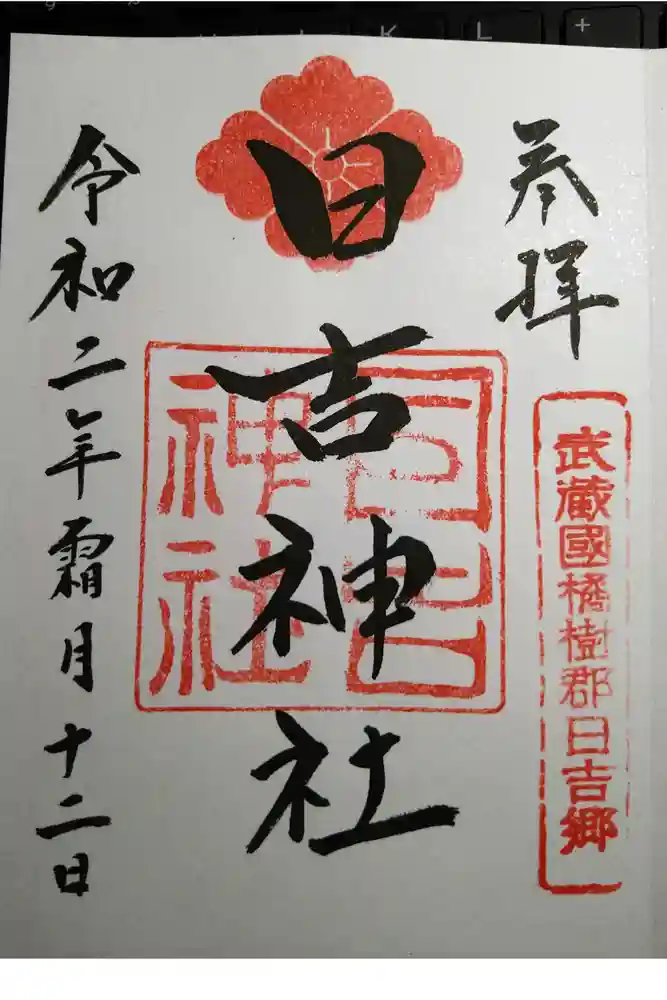 奉拝
武蔵國橘樹郡日吉郷
日吉神社
日吉神社
令和二年霜月十二日
K
L
+